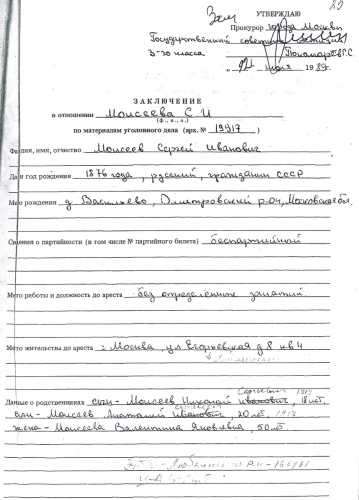 29
Зам
УТВЕРЖДАЮ
Прокурор города Москвы
Государственный советник юстиции
3-го класса Пономарёв Г.С.
июля 1989г.
ЗАКЛЮЧЕНИЕ
в отношении Моисеева С И
(ф., и., о.)
по материалам уголовного дела (арх. № 19917 )
Фамилия, имя, отчество Моисеев Сергей Иванович
Дата и год рождения 1876 года, русский, гражданин СССР
Место рождения д Васильево, Дмитровский р-он, Московская обл.
Сведения о партийности (в том числе № партийного билета) беспартийный
Место работы и должность до ареста без определённых занятий
Место жительства до ареста г. Москва, ул Егорьевская д 8 кв 4
Сергеевич 1919
Данные о родственниках сын - Моисеев Николай Иванович, 18 лет.
Сергеевич
сын - Моисеев Анатолий Иванович, 20 лет, 1917
жена - Моисеева Валентина Яковлевна, 50 лет.